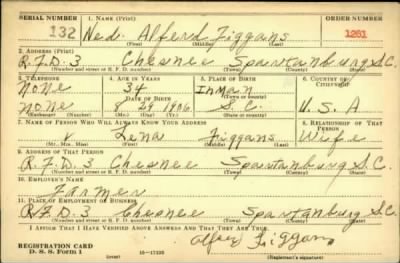 SERIAL NUMBER 1. NAME (Print) ORDER NUMBER
132 Ned Alferd Figgans 1261
(First) (Middle) (Last)
2. ADDRESS (Print)
R.F.D. 3 Chesnee Spartanburg S.C.
(Number and street or R. F. D. number) (Town) (County) (State)
3. TELEPHONE 4. AGE IN YEARS 5. PLACE OF BIRTH 6. COUNTRY OF CITIZENSHIP
None 34 Inman
DATE OF BIRTH
None 8 29 1906 S.C. U.S.A
(Exchange) (Number) (Mo.) (Day) (Yr.) (State or country)
7. NAME OF PERSON WHO WILL ALWAYS KNOW YOUR ADDRESS 8. RELATIONSHIP OF THAT PERSON
Lena Figgans Wife
(Mr., Mrs., Miss) (First) (Middle) (Last)
9. ADDRESS OF THAT PERSON
R.F.D. 3 Chesnee Spartanburg S.C.
(Number and street or R. F. D. number) (Town) (County) (State)
10. EMPLOYER'S NAME
Farmer
11. PLACE OF EMPLOYMENT OR BUSINESS
R.F.D. 3 Chesnee Spartanburg S.C.
(Number and street or R. F. D. number) (Town) (County) (State)
I AFFIRM THAT I HAVE VERIFIED ABOVE ANSWERS AND THAT THEY ARE TRUE.
REGISTRATION CARD
D. S. S. Form 1 16—17105 (Registrant's signature)